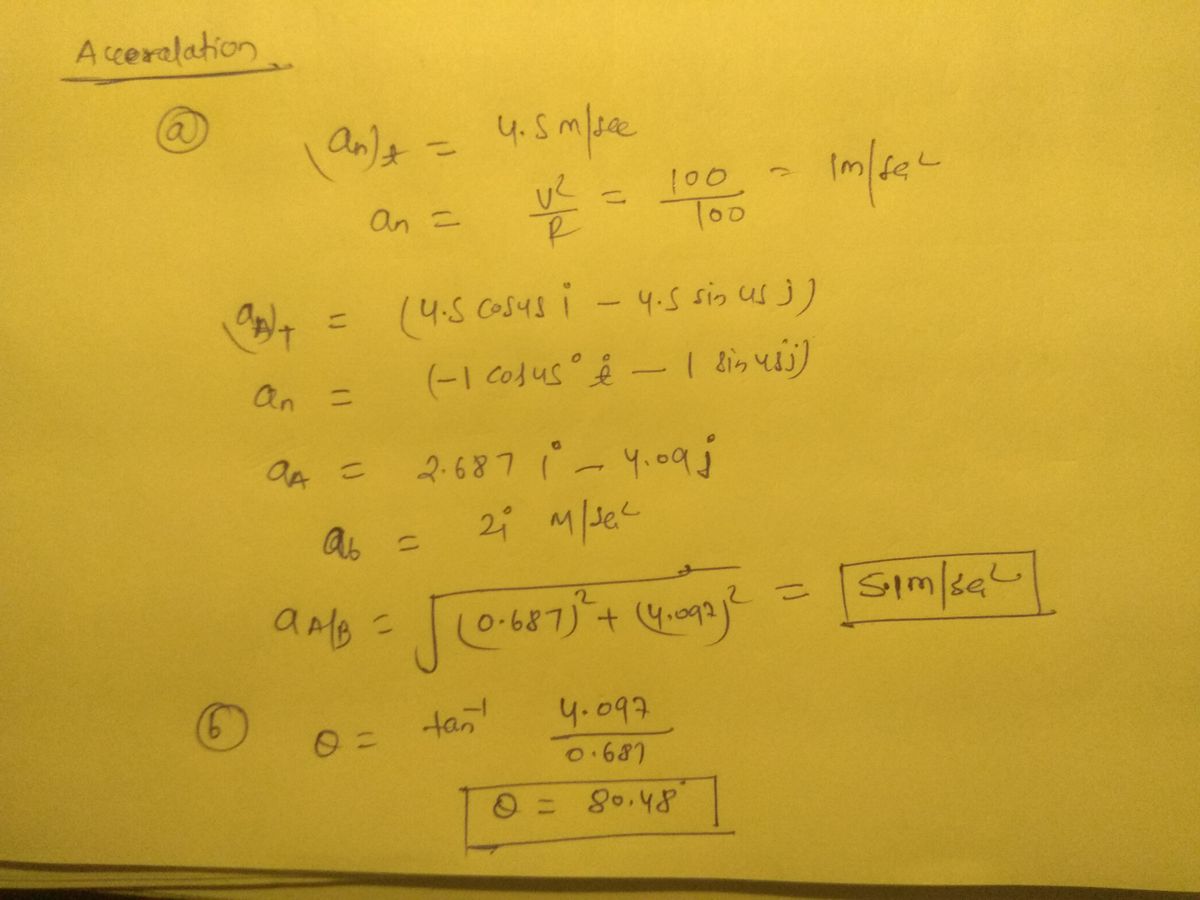 Acceralation
(a)
(an)t = 4.5 m/see
an = v²/R = 100/100 = 1m/sec²
(aA)t = (4.5 cos45 i - 4.5 sin 45 j)
an = (-1 cos45° i - 1 sin 45j)
aA = 2.687 i - 4.09 j
ab = 2i M/sec²
aA/B = √(0.687)² + (4.097)² = 5.1m/sec²
(b) θ = tan⁻¹ 4.097/0.687
θ = 80.48°